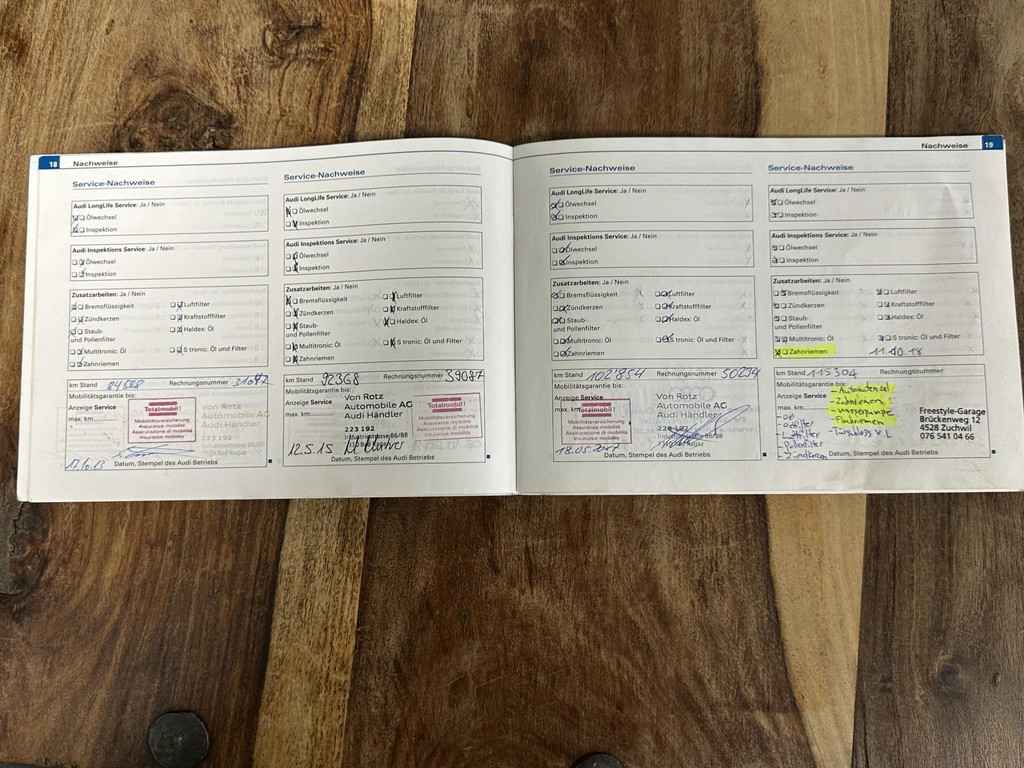 18 Nachweise
Service-Nachweise
Audi LongLife Service: Ja / Nein
Ölwechsel
Inspektion
Audi Inspektions Service: Ja / Nein
Ölwechsel
Inspektion
Zusatzarbeiten: Ja / Nein
Bremsflüssigkeit
Luftfilter
Zündkerzen
Kraftstofffilter
Staub-
und Pollenfilter
Haldex: Öl
Multitronic: Öl
S tronic: Öl und Filter
Zahnriemen
km Stand 84568 Rechnungsnummer
Mobilitätsgarantie bis:
Anzeige Service
max. km
Totalmobil!
Mobilitätsversicherung
Von Rotz
Automobile AG
Audi Händler
223 192
Datum, Stempel des Audi Betriebs
Service-Nachweise
Audi LongLife Service: Ja / Nein
Ölwechsel
Inspektion
Audi Inspektions Service: Ja / Nein
Ölwechsel
Inspektion
Zusatzarbeiten: Ja / Nein
Bremsflüssigkeit
Luftfilter
Zündkerzen
Kraftstofffilter
Staub-
und Pollenfilter
Haldex: Öl
Multitronic: Öl
S tronic: Öl und Filter
Zahnriemen
km Stand 92368 Rechnungsnummer 39087
Mobilitätsgarantie bis:
Anzeige Service
max. km
Von Rotz
Automobile AG
Audi Händler
223 192
Totalmobil!
Mobilitätsversicherung
12.5.15
Datum, Stempel des Audi Betriebs
Nachweise 19
Service-Nachweise
Audi LongLife Service: Ja / Nein
Ölwechsel
Inspektion
Audi Inspektions Service: Ja / Nein
Ölwechsel
Inspektion
Zusatzarbeiten: Ja / Nein
Bremsflüssigkeit
Luftfilter
Zündkerzen
Kraftstofffilter
Staub-
und Pollenfilter
Haldex: Öl
Multitronic: Öl
S tronic: Öl und Filter
Zahnriemen
km Stand 102854 Rechnungsnummer 50234
Mobilitätsgarantie bis:
Anzeige Service
max. km
Totalmobil!
Mobilitätsversicherung
Von Rotz
Automobile AG
Audi Händler
Datum, Stempel des Audi Betriebs
Service-Nachweise
Audi LongLife Service: Ja / Nein
Ölwechsel
Inspektion
Audi Inspektions Service: Ja / Nein
Ölwechsel
Inspektion
Zusatzarbeiten: Ja / Nein
Bremsflüssigkeit
Luftfilter
Zündkerzen
Kraftstofffilter
Staub-
und Pollenfilter
Haldex: Öl
Multitronic: Öl
S tronic: Öl und Filter
Zahnriemen 11.10.18
km Stand 115304 Rechnungsnummer
Mobilitätsgarantie bis:
Anzeige Service
max. km
- Zahnriemen
- Wasserpumpe
Öl
Ölfilter
Luftfilter
Pollenfilter
- Zündkerzen
Freestyle-Garage
Brückenweg 12
4528 Zuchwil
076 541 04 66
Datum, Stempel des Audi Betriebs